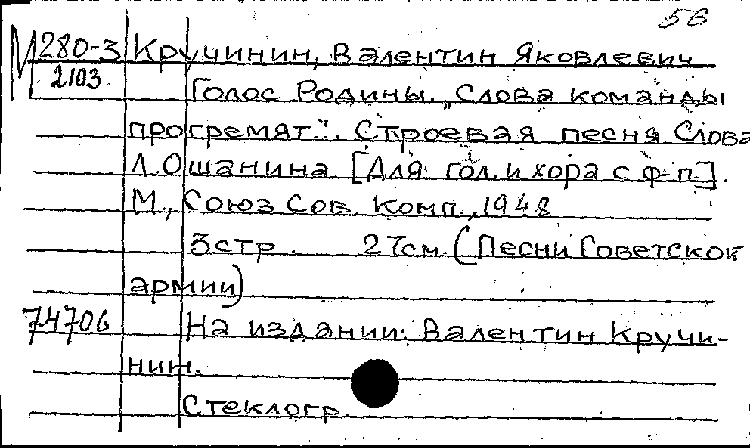 56
М 280-3 Кручинин, Валентин Яковлевич
2103 Голос Родины. "Слова команды
прогремят.". Строевая песня Слова
Л. Ошанина [Для гол. и хора с ф-п].
М., Союз Сов. Комп., 1948
3 стр. 27см. (Песни Советской
армии)
74706 На издании: Валентин Кручи-
нин.
Стеклогр.